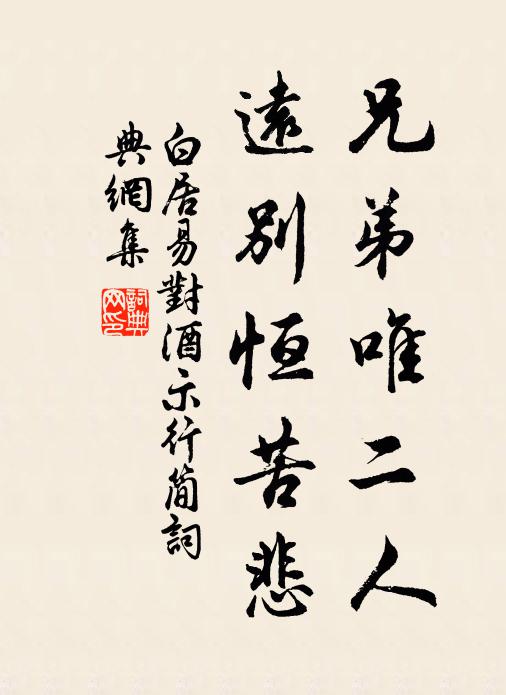 兄弟唯二人
遠別恒苦悲
白居易對酒示行簡詞
典網集
詞典
网印